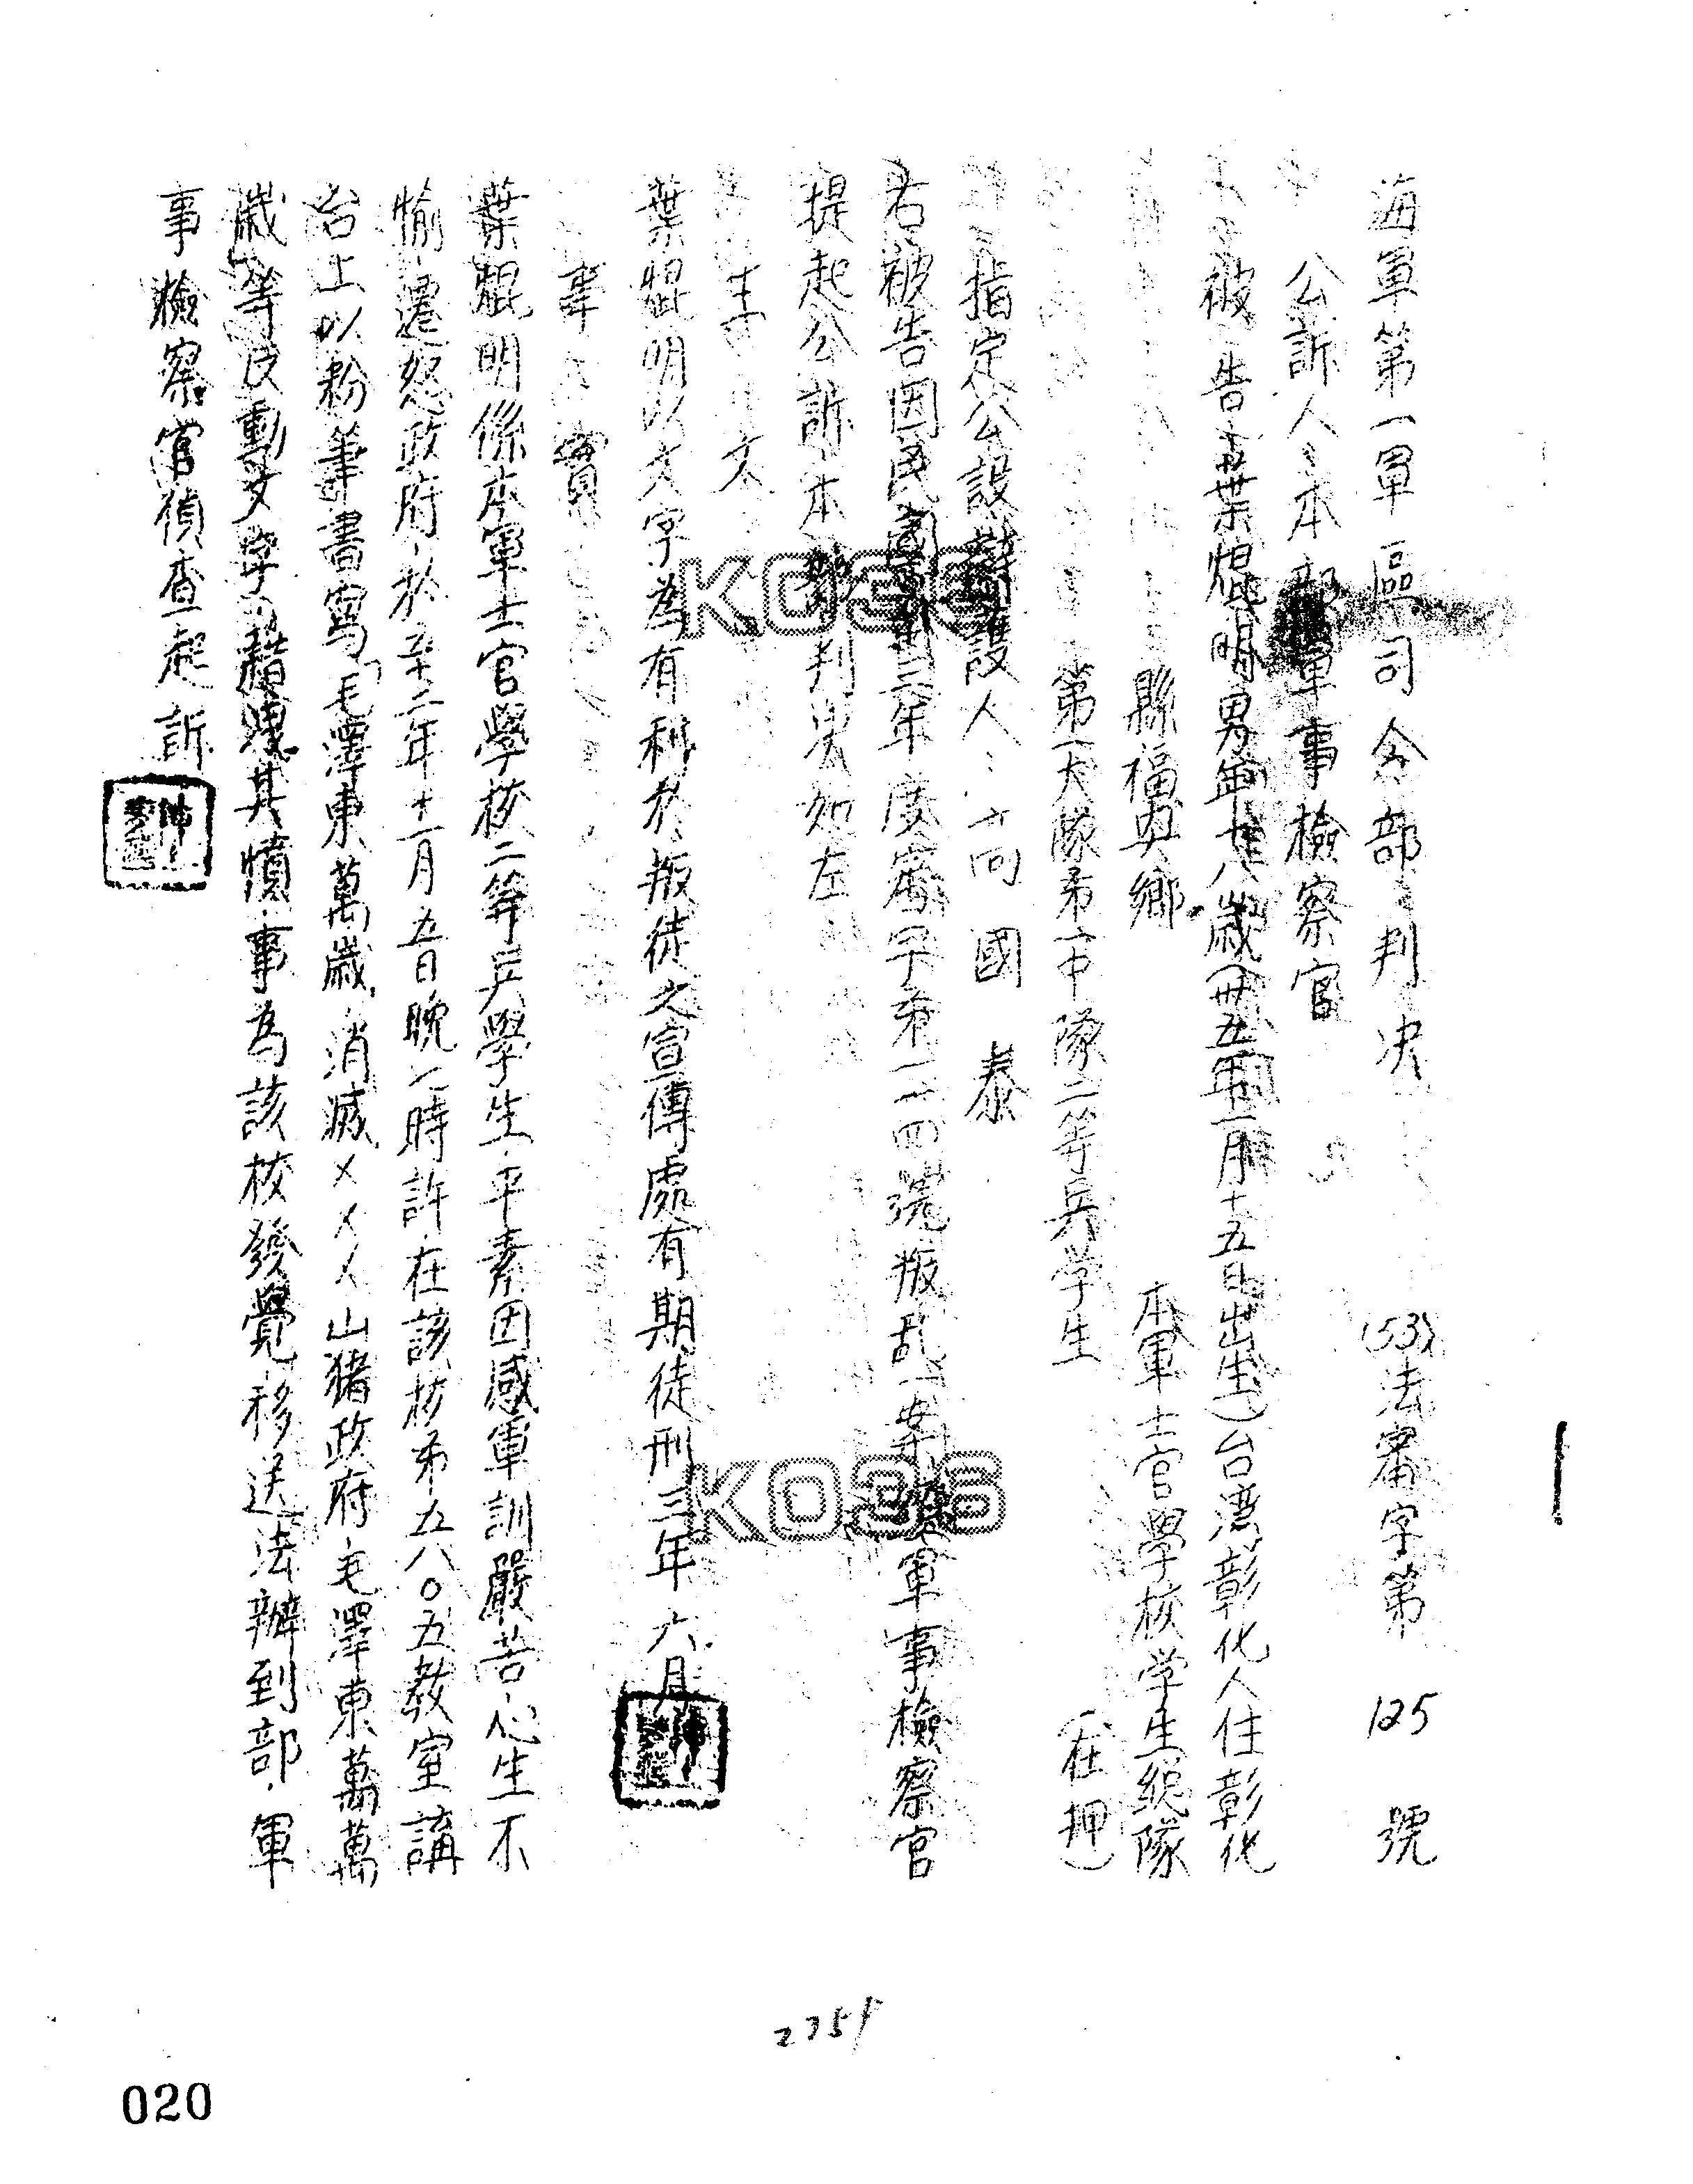 海軍第一軍區司令部判決 (53)法審字第 125 號
公訴人：本部軍事檢察官
被告：葉焜明男年廿八歲(廿五年一月十五日出生)台灣彰化人住彰化
縣福興鄉 本軍士官學校学生總隊
第一大隊第一中隊二等兵学生 (在押)
指定公設辯護人： 國泰
右被告因民國五十三年度審字第一一四號叛乱一案經軍事檢察官
提起公訴本部判決如左
主文
葉焜明以文字為有利於叛徒之宣傳處有期徒刑三年六月
事實
葉焜明係本軍士官學校二等兵學生平素因感軍訓嚴苦心生不
愉遷怒政府於五十二年十一月五日晚八時許在該校第五八〇五教室講
台上以粉筆書寫「毛澤東萬歲、消滅×××山猪政府毛澤東萬萬
歲」等反動文字藉洩其憤事為該校發覺移送法辦到部、軍
事檢察官偵查起訴
K036
K036
2754
020